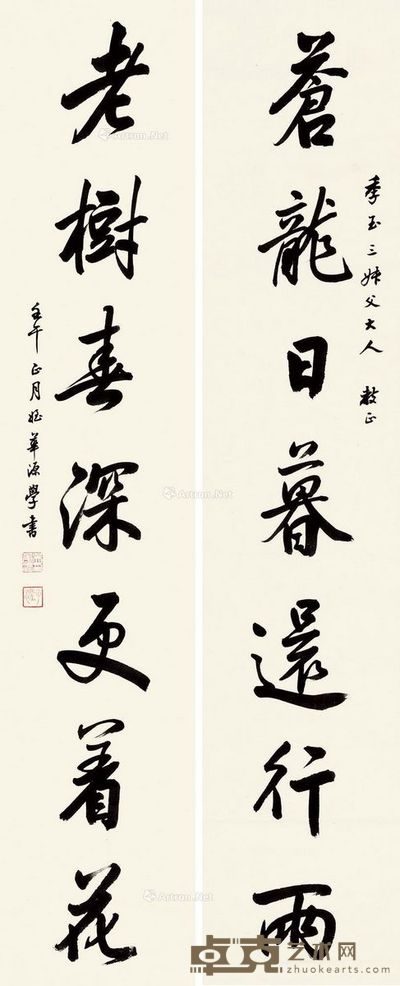 季玉三姊父大人 教正
蒼龍日暮還行雨
老樹春深更着花
壬午正月姪華源學書
Artron.Net
Artron.Net
Artron.Net
Artron.Net
卓克艺术网
zhuokearts.com